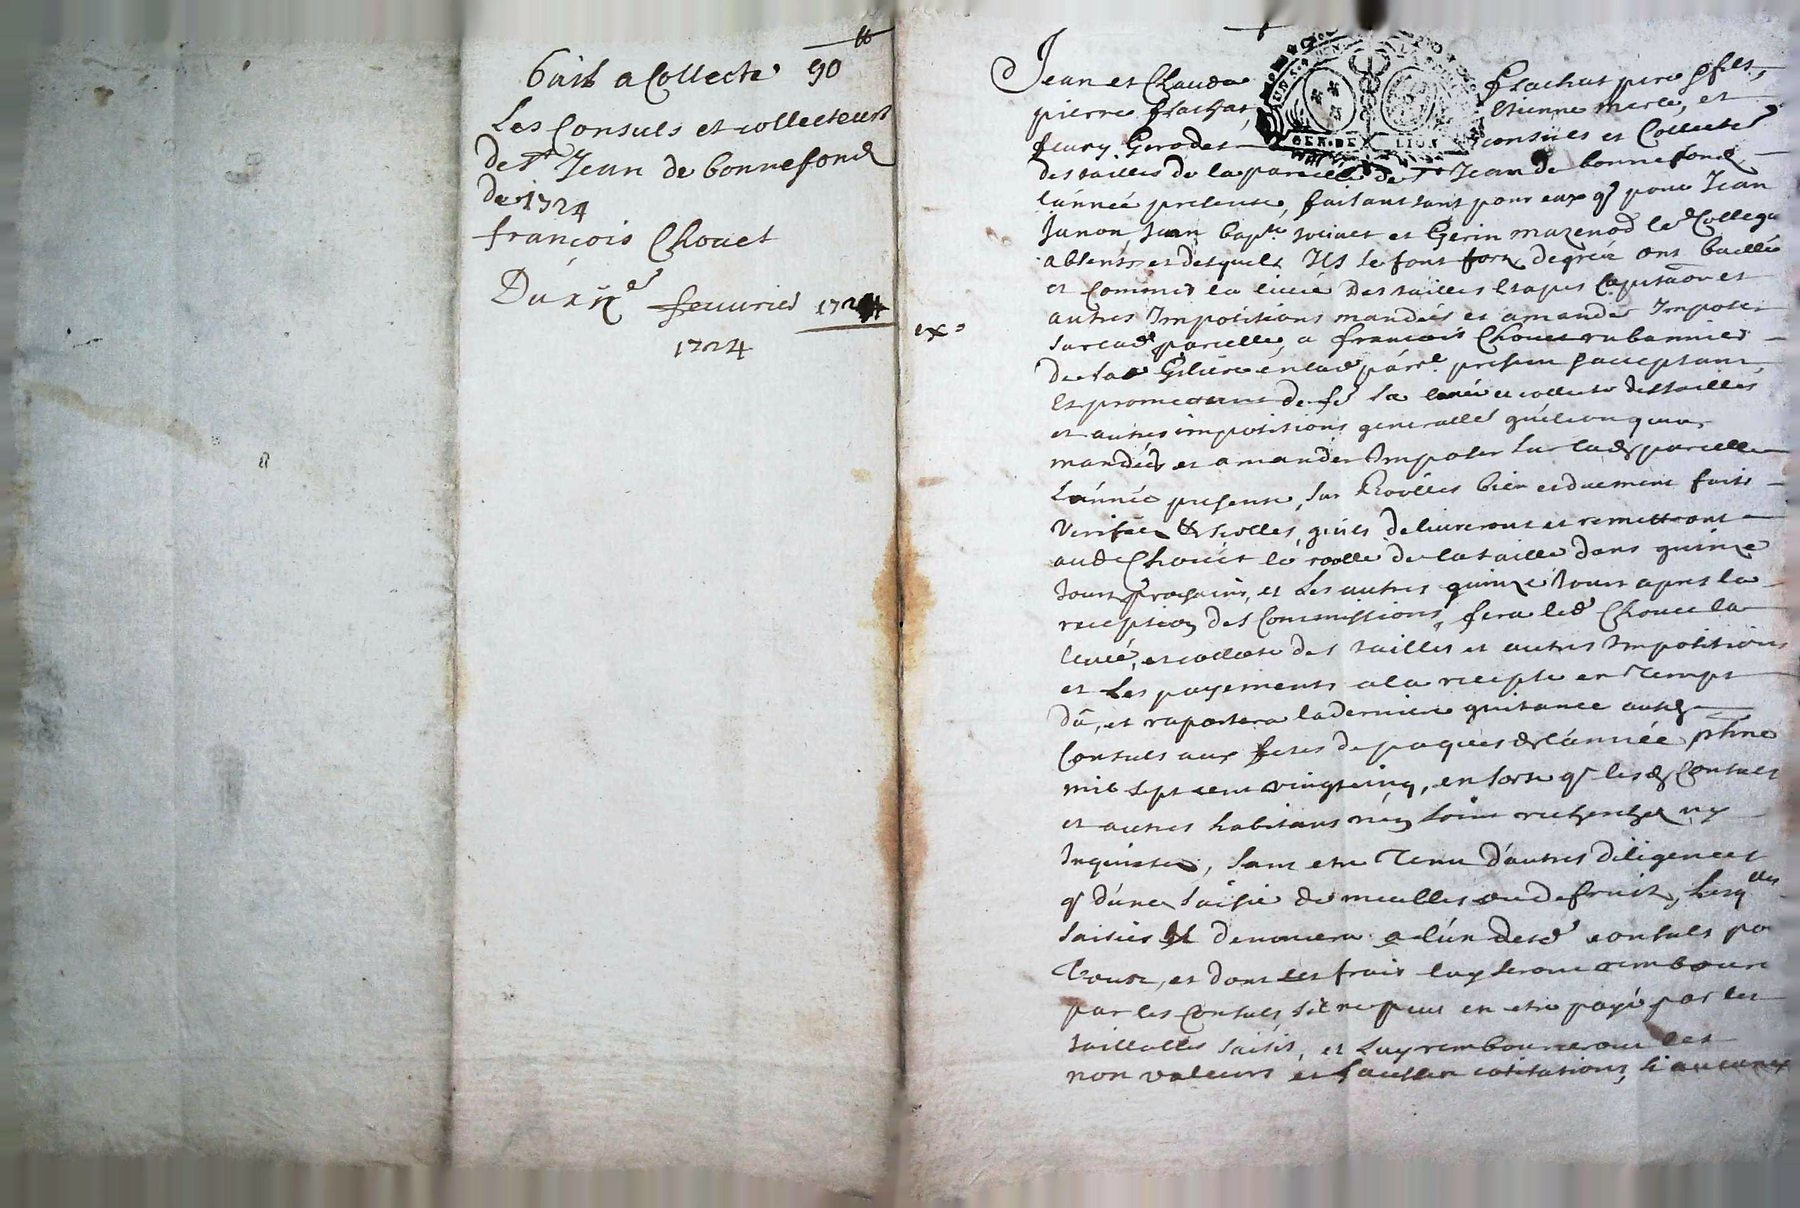 tt
bail a Collecte 90
Les Consuls et collecteurs
de St Jean de bonnefond
de 1724
françois Chouet
Du xne feuurier 1724
1724
ex=
Jean et Claude Flachat pere & fils,
pierre flachat, Etienne merle, et
fleury Gerodet consuls et Collecte
des tailles de la parcelle de St Jean de bonnefond
lánnée presente, faisant tant pour eux q pour Jean
Junon Jean bapte et Gerin mazenod le Collegu
absents et desquels Ils se font fort, de gré ont baillé
et Commis la levée Des tailles Etapes Capitãon et
autres Impositions mandées et a mander Imposer
sur lad parcelle, a françois Chouet rubannier
de la Giliere en lad parle. present & acceptant
Et promettant de fe la levée et collecte des tailles
et autres impositions generalles quélconques
mandées et a mander Imposer sur lad parcelle
Lánnée presente, sur Roolles bien et duement faits
Verifiées & scelles, quils delivreront et remettront
aud Chouet le roolle de la taille dans quinze
Jours prochains, et Les autres quinze Jours apres la
reception des Commissions, fera led Chouet la
levée, et collecte des tailles et autres Impositions
et Les payements a la recepte en Temps
dû, et raportera la derniere quitance ausd
Consuls aux fetes de paques de lánnée pchne
mil sept cent vingtcinq, en sorte q lesd Consuls
et autres habitans nén soint recherchez ny
Inquietez, sans etre Tenu d'autres diligences
q dúne saisie de meubles ou de fruits, Lesqlles
saisies Il denoncera a lún desd consuls po
Toute, et dont les frais luy seront rembour
par les Consuls, sil ne peut en etre payé par les
taillables saisis, et Luy rembourceront les
non valeurs et fautes cotisations, si aucunes